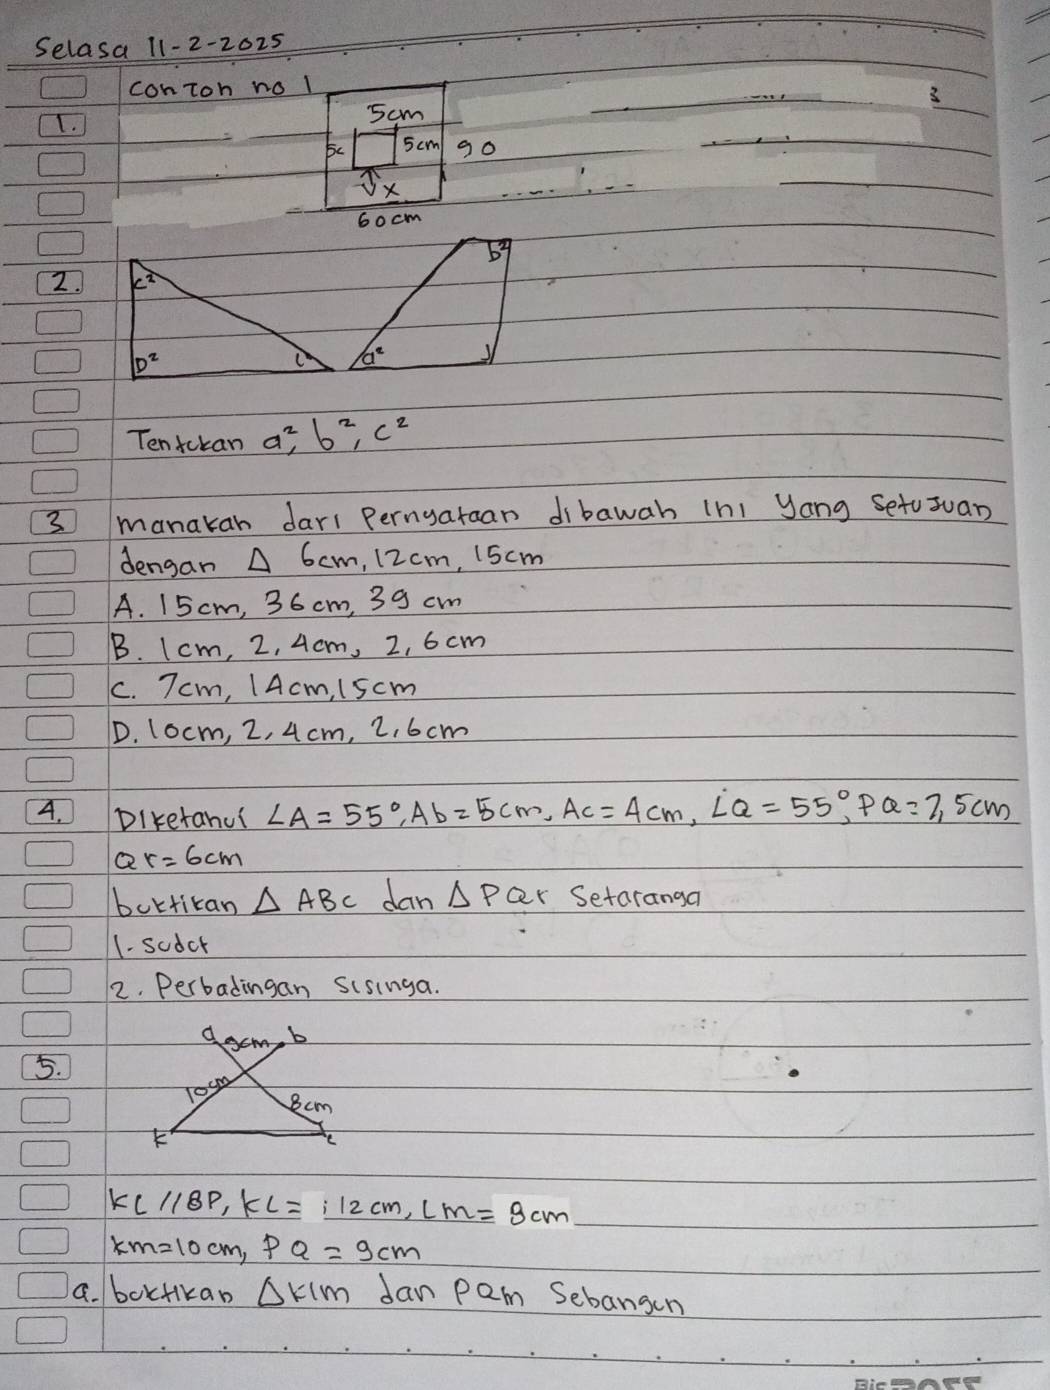 Selasa 11-2-2025
conton no 1
1.
5cm
5cm
90
x
60cm
2.
c²
b²
D²
a²
Tentukan a², b², c²
3 manakah dari Pernyataan dibawah ini yang setujuan
dengan Δ 6cm, 12cm, 15cm
A. 15cm, 36cm, 39cm
B. 1cm, 2,4cm, 2,6cm
C. 7cm, 14cm, 15cm
D. 10cm, 2,4cm, 2,6cm
4. Diketahui ∠A = 55°, Ab = 5cm, Ac = 4cm, ∠Q = 55°, PQ = 7,5cm
Qr = 6cm
buktikan Δ ABC dan Δ PQr Setaranga
1. sudut
2. Perbadingan sisinga.
5.
9cm b
10cm
8cm
k
KL // BP, KL = 12cm, Lm = 8cm
km = 10cm, PQ = 9cm
a. buktikan Δ klm dan PQm Sebangun